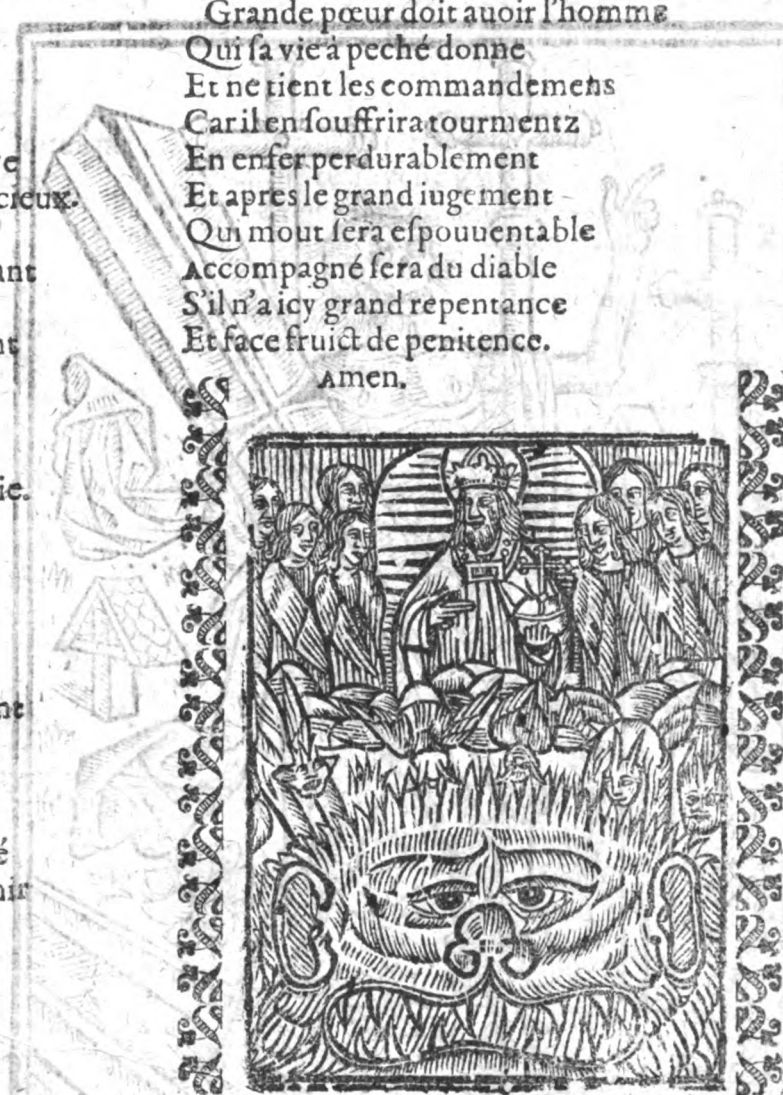 Grande pœur doit auoir l'homme
Qui ſa vie à peché donne
Et ne tient les commandemens
Car il en ſouffrira tourmentz
En enfer perdurablement
Et apres le grand iugement
Qui mout ſera eſpouuentable
Accompagné ſera du diable
S'il n'a icy grand repentance
Et face fruict de penitence.
Amen.